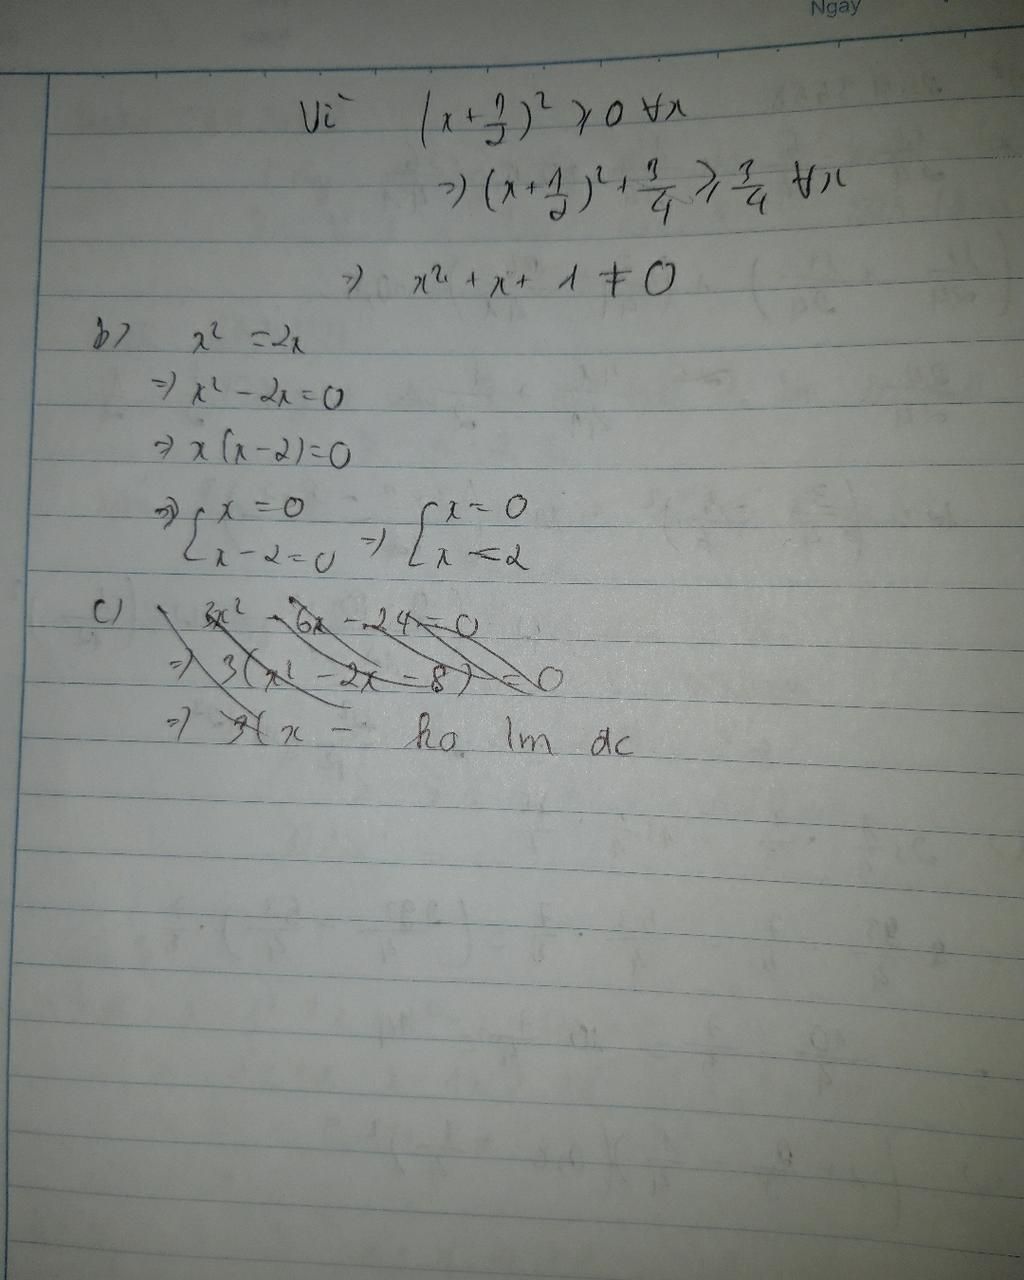 Ngay
Vì (x + 1/2)² ⩾ 0 ∀x
=> (x + 1/2)² + 3/4 ⩾ 3/4 ∀x
=> x² + x + 1 ≠ 0
b) x² = 2x
=> x² - 2x = 0
=> x(x - 2) = 0
=> [x = 0 => [x = 0
x - 2 = 0 x = 2
c) 3x² - 6x - 24 = 0
=> 3(x² - 2x - 8) = 0
=> 3(x - ko lm dc